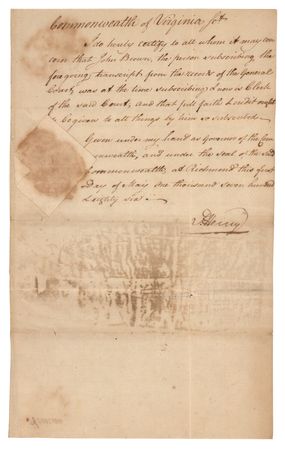 Commonwealth of Virginia Sct.
I do hereby certify to all whom it may con
cern that John Brown, the person subscribing the
foregoing transcript from the records of the General
Court, was at the time subscribing & now is Clerk
of the said Court, and that full faith & credit ought
to be given to all things by him so subscribed.
Given under my hand as Governor of the Com
monwealth, and under the seal of the said
Commonwealth, at Richmond this first
Day of May one thousand seven hundred
Eighty six.
P. Henry